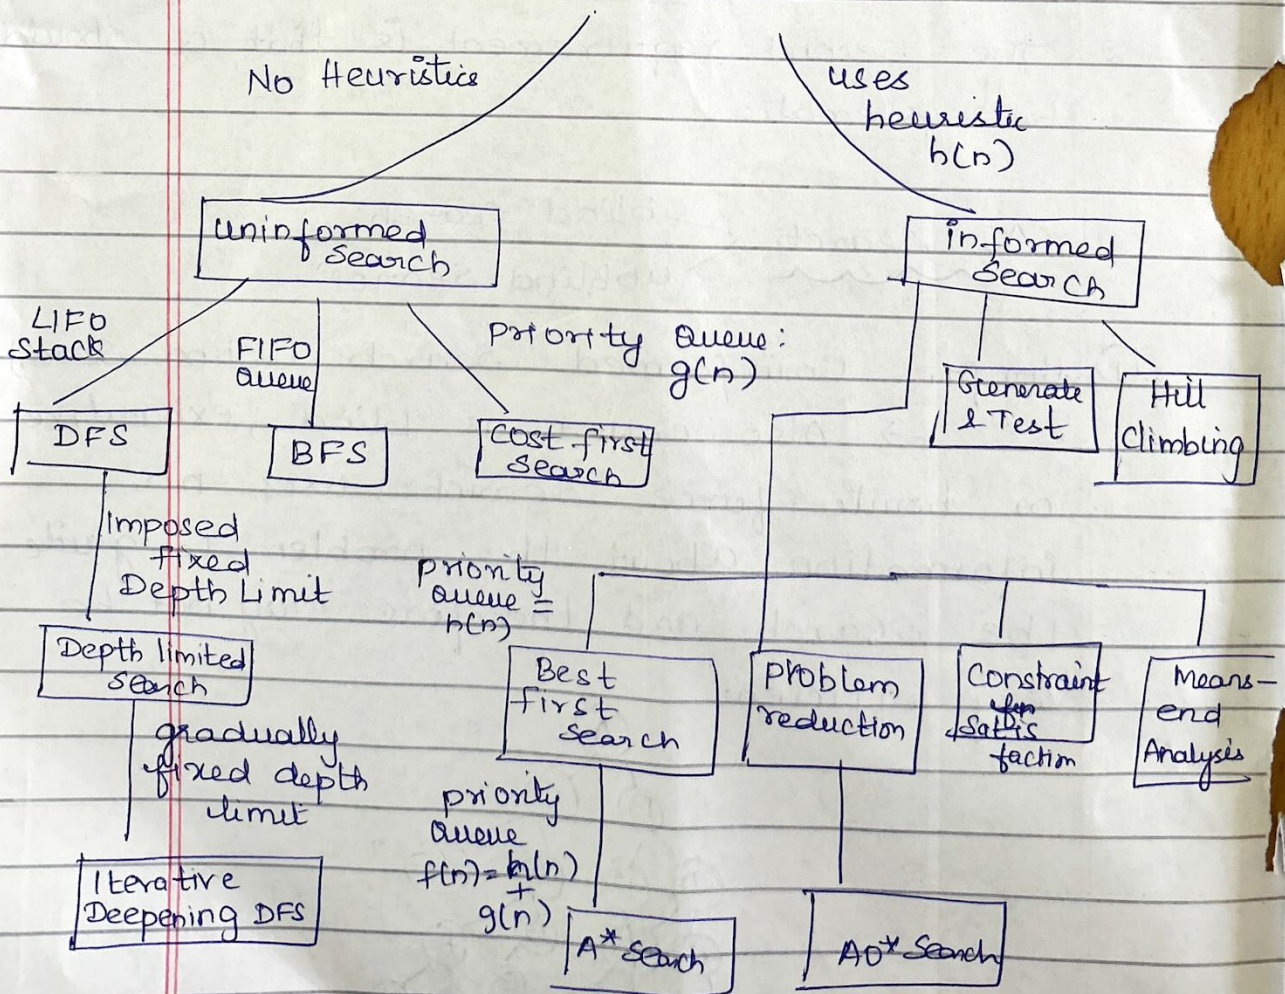 No Heuristics
uses
heuristic
h(n)
Uninformed
Search
informed
Search
LIFO
Stack
FIFO
Queue
Priority Queue:
g(n)
DFS
BFS
Cost-first
Search
Generate
& Test
Hill
Climbing
Imposed
fixed
Depth Limit
priority
Queue =
h(n)
Depth limited
search
Best
first
Search
Problem
reduction
Constraint
Satis
faction
Means-
end
Analysis
gradually
fixed depth
limit
priority
Queue
f(n)=h(n)
+
g(n)
Iterative
Deepening DFS
A* Search
AO* Search